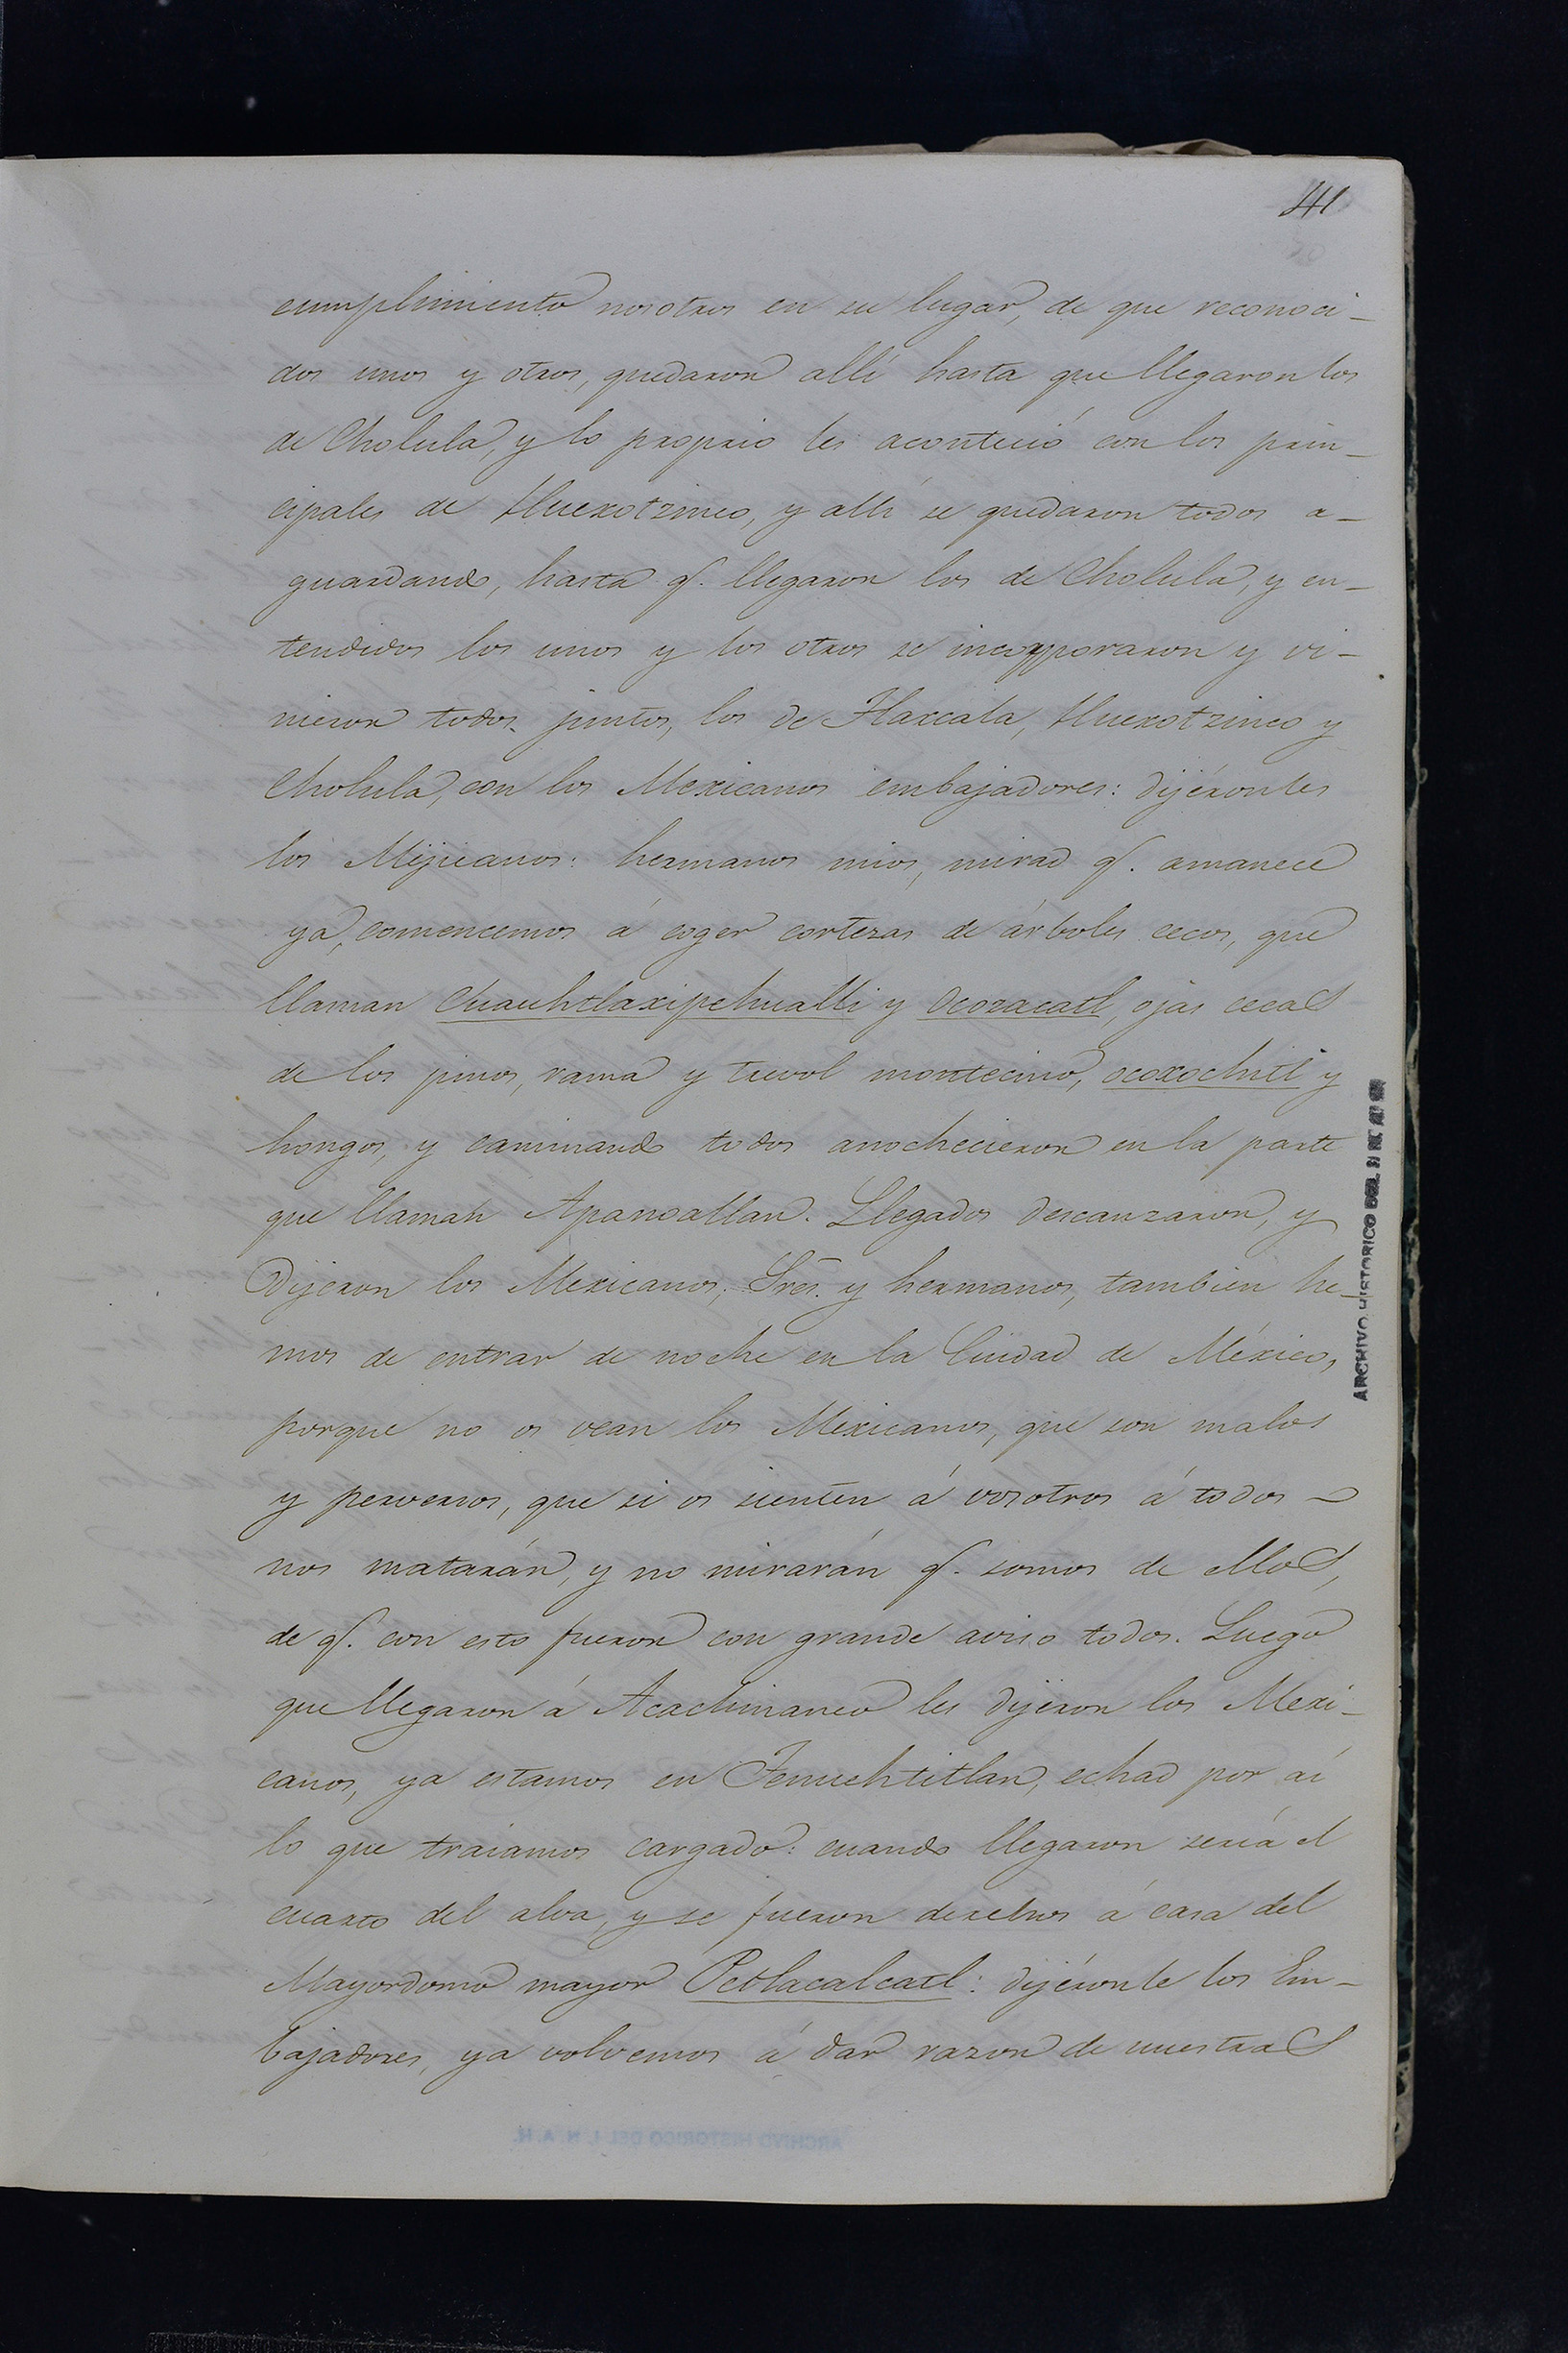 41
cumplimiento nosotros en su lugar, de que reconoci-
dos unos y otros, quedaron allí hasta que llegaron los
de Cholula, y lo proprio les aconteció con los prin-
cipales de Huexotzinco, y allí se quedaron todos a-
guardando, hasta q. llegaron los de Cholula, y en-
tendidos los unos y los otros se incorporaron y vi-
nieron todos juntos, los de Tlaxcala, Huexotzinco y
Cholula, con los Mexicanos embajadores: dijéronles
los Mejicanos: hermanos mios, mirad q. amanece
ya, comencemos á coger cortezas de árboles cecos, que
llaman Cuauhtlaxipehualli y Ocozacatl, ojas cecas
de los pinos, rama y trevol montecino, ocoxochitl y
hongos, y caminando todos anochecieron en la parte
que llaman Apanoatlan. Llegados descanzaron, y
Dijeron los Mexicanos; Sres. y hermanos, tambien he-
mos de entrar de noche en la Ciudad de México,
porque no os vean los Mexicanos, que son malos
y perversos, que si os sienten á vosotros á todos
nos matarán, y no mirarán q. somos de ellos,
de q. con esto fueron con grande aviso todos. Luego
que llegaron á Acachinanco les dijeron los Mexi-
canos, ya estamos en Tenuchtitlan, echad por aí
lo que traiamos cargado: cuando llegaron sería el
cuarto del alva, y se fueron derechos á casa del
Mayordomo mayor Petlacalcatl: dijéronle los Em-
bajadores, ya volvemos á dar razon de nuestras
ARCHIVO HISTORICO DEL I. N. A. H.
ARCHIVO HISTORICO DEL I. N. A. H.